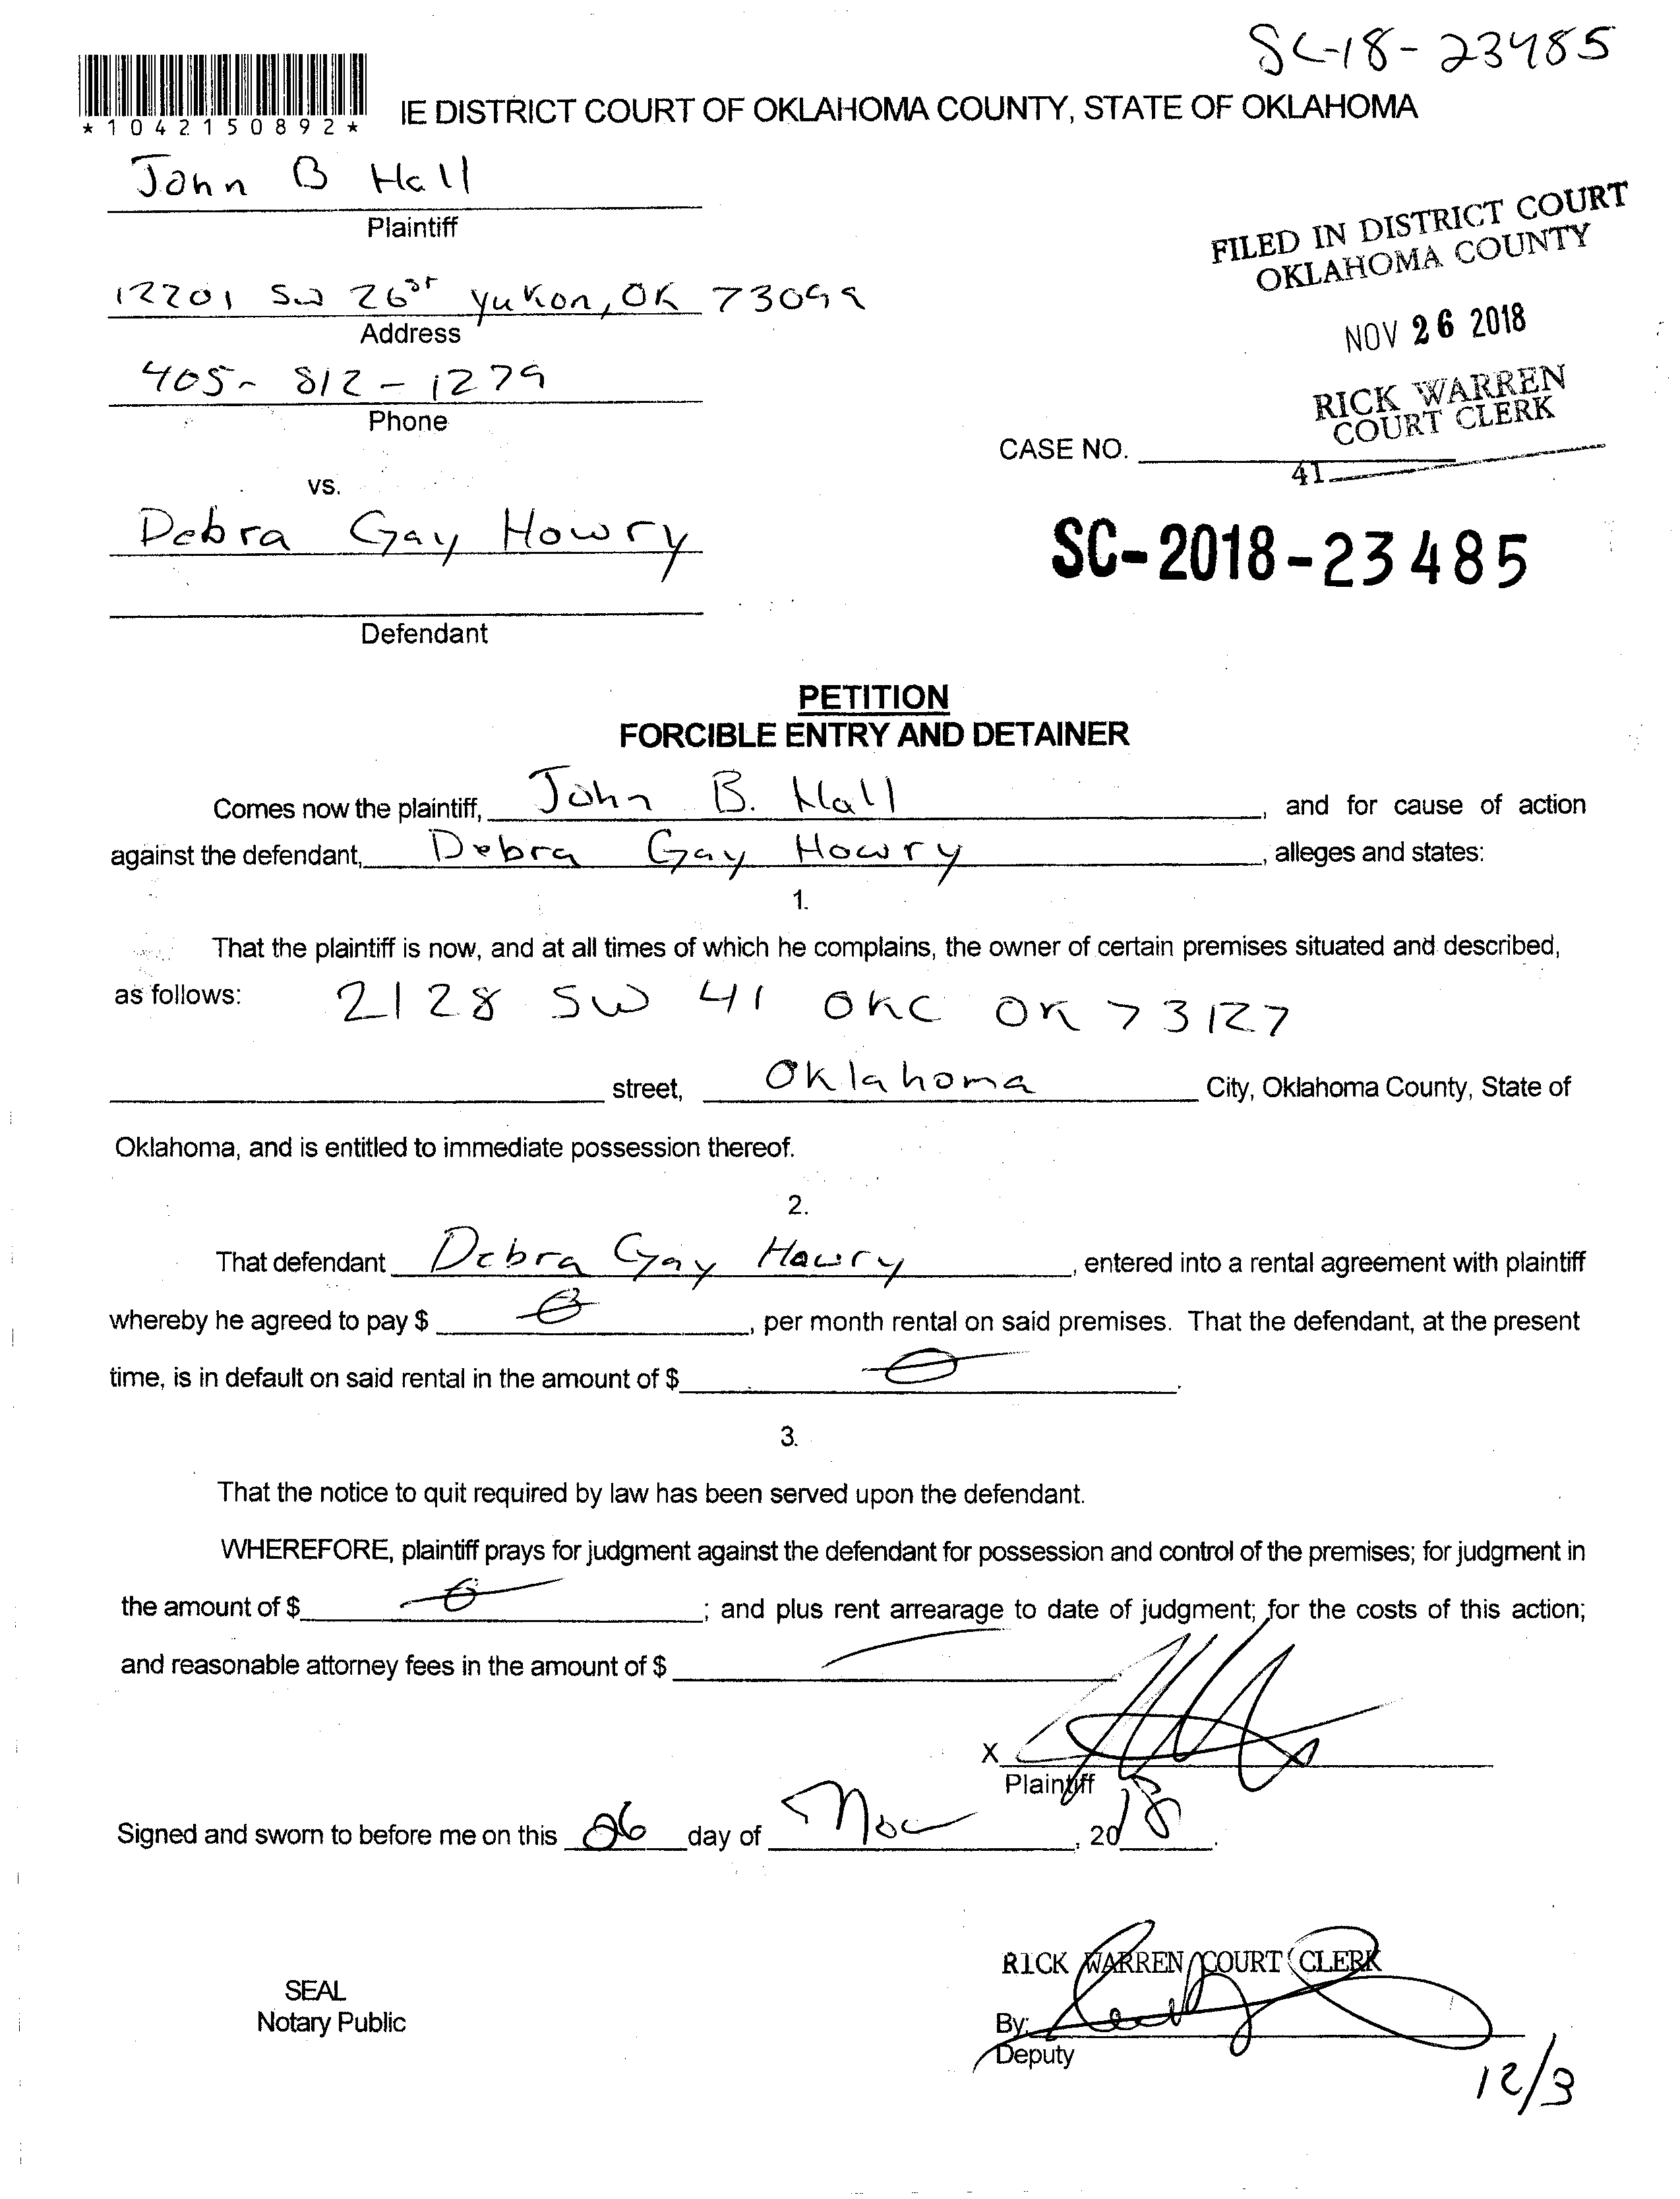 SC-18-23485
*1042150892*
IE DISTRICT COURT OF OKLAHOMA COUNTY, STATE OF OKLAHOMA
John B Hall
Plaintiff
12201 SW 26st Yukon, OK 73099
Address
405-812-1279
Phone
vs.
Debra Gay Howry
Defendant
FILED IN DISTRICT COURT
OKLAHOMA COUNTY
NOV 26 2018
RICK WARREN
COURT CLERK
CASE NO.
41
SC-2018-23485
PETITION
FORCIBLE ENTRY AND DETAINER
Comes now the plaintiff, John B. Hall, and for cause of action
against the defendant, Debra Gay Howry, alleges and states:
1.
That the plaintiff is now, and at all times of which he complains, the owner of certain premises situated and described,
as follows: 2128 SW 41 OKC OK 73127
street, Oklahoma City, Oklahoma County, State of
Oklahoma, and is entitled to immediate possession thereof.
2.
That defendant Debra Gay Howry, entered into a rental agreement with plaintiff
whereby he agreed to pay $ 0, per month rental on said premises. That the defendant, at the present
time, is in default on said rental in the amount of $ 0.
3.
That the notice to quit required by law has been served upon the defendant.
WHEREFORE, plaintiff prays for judgment against the defendant for possession and control of the premises; for judgment in
the amount of $ 0; and plus rent arrearage to date of judgment; for the costs of this action;
and reasonable attorney fees in the amount of $
X
Plaintiff
Signed and sworn to before me on this 26 day of Nov, 2018.
RICK WARREN COURT CLERK
SEAL
Notary Public
By:
Deputy
12/3